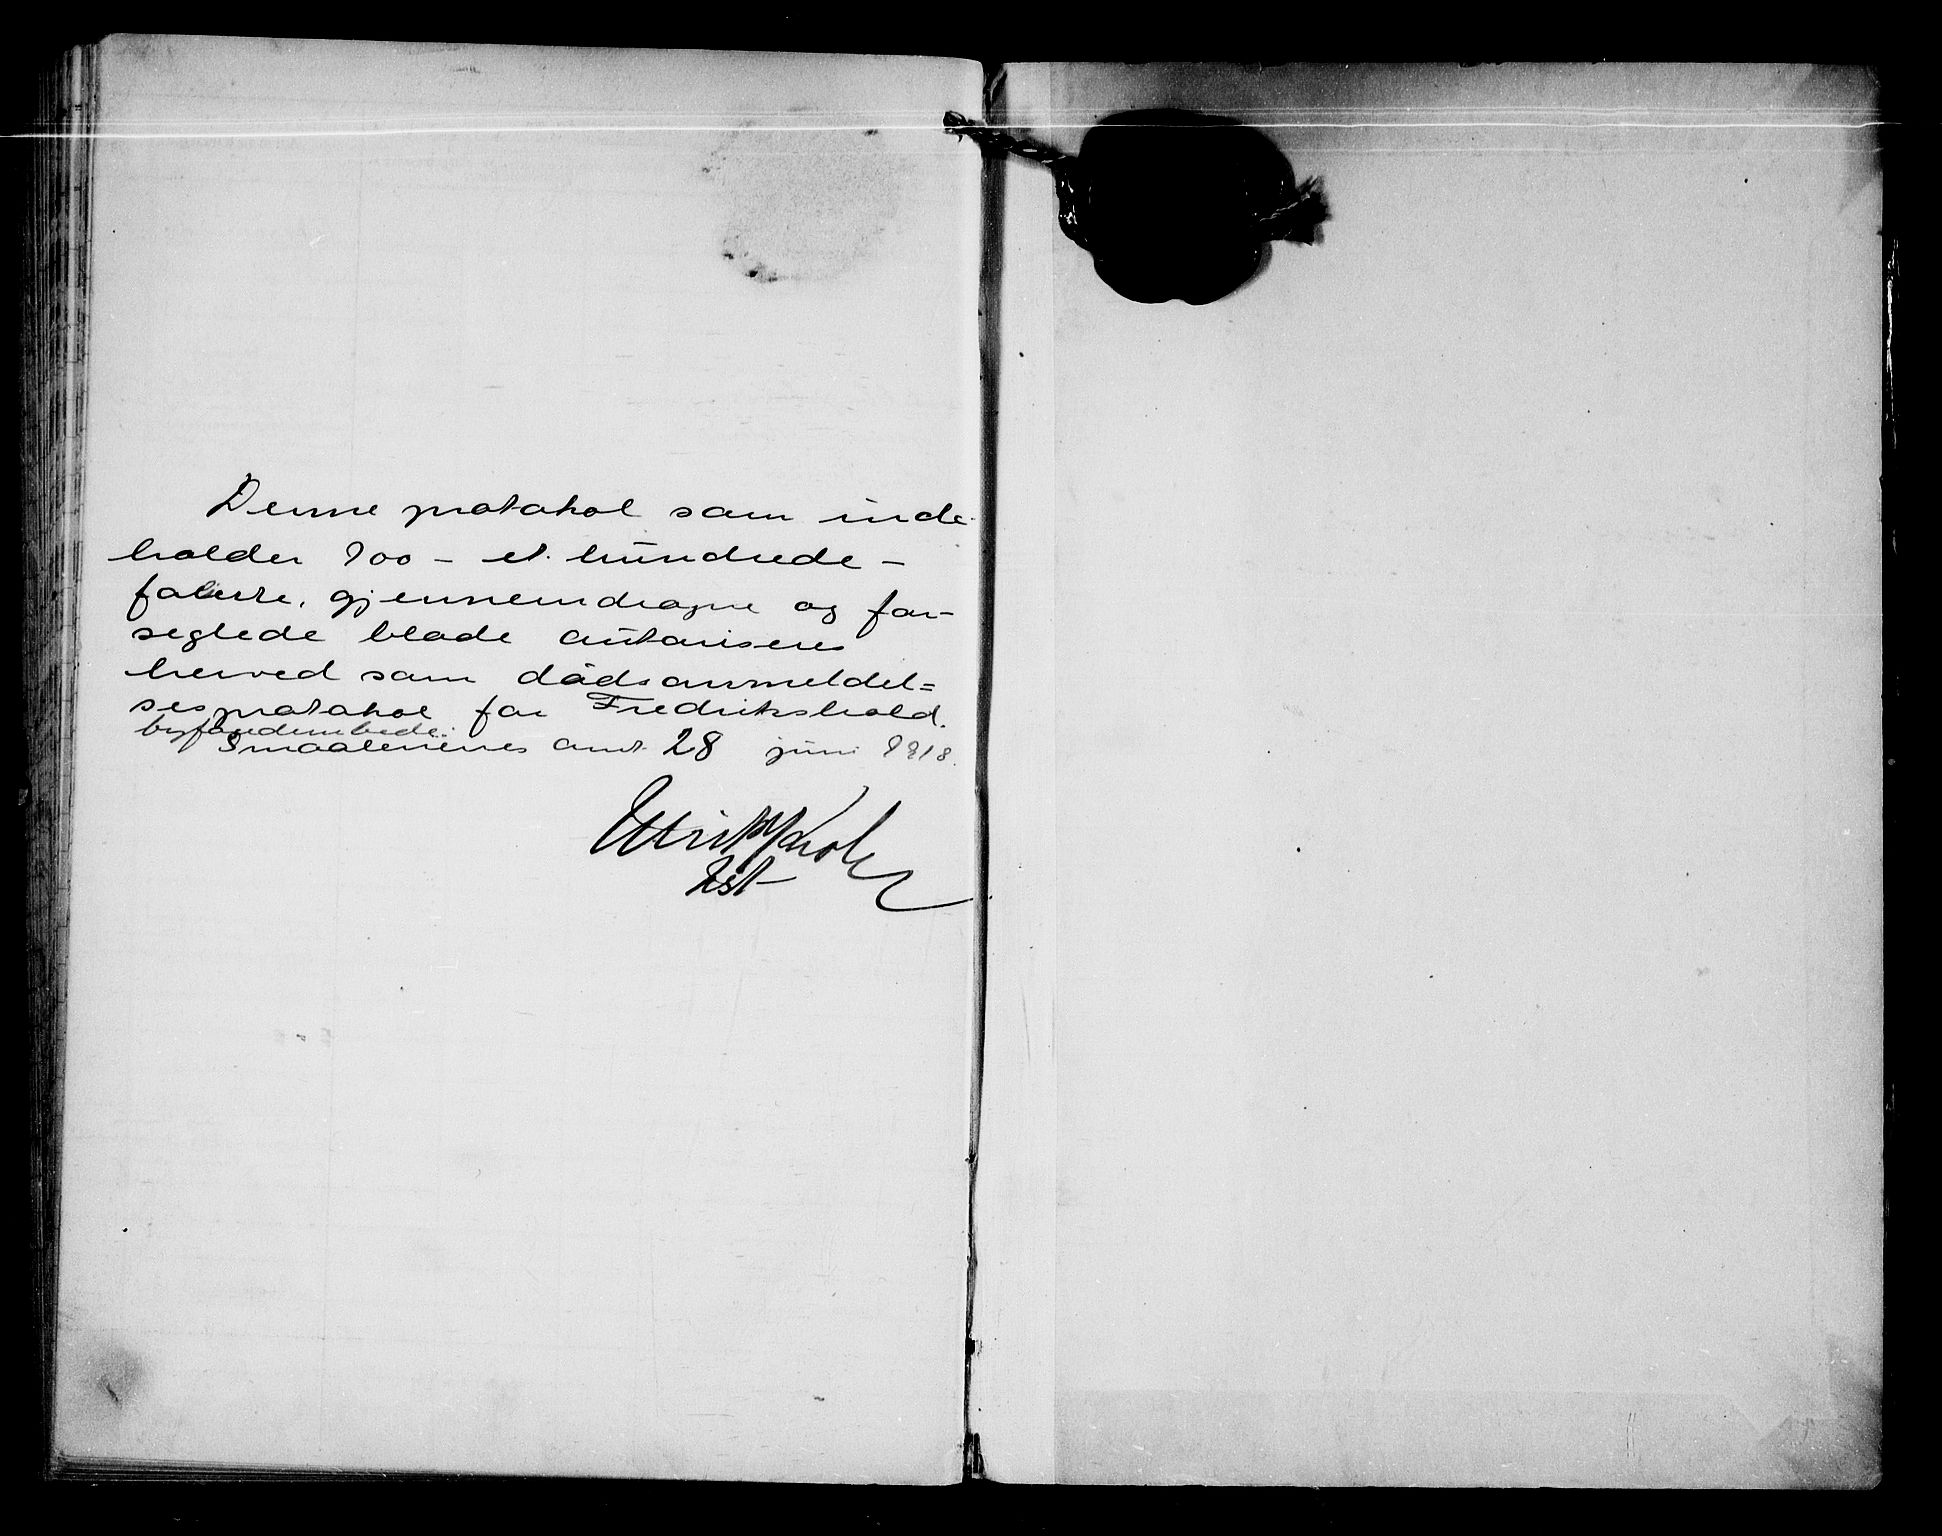 Denne protokol som inde-
holder 100 - et hundrede -
folierte, gjennemdragne og for-
seglede blade autoriseres
herved som dødsanmeldel=
sesprotokol for Fredrikshald
byfogedembede.
Smaalenenes amt 28 juni 1918.
kst